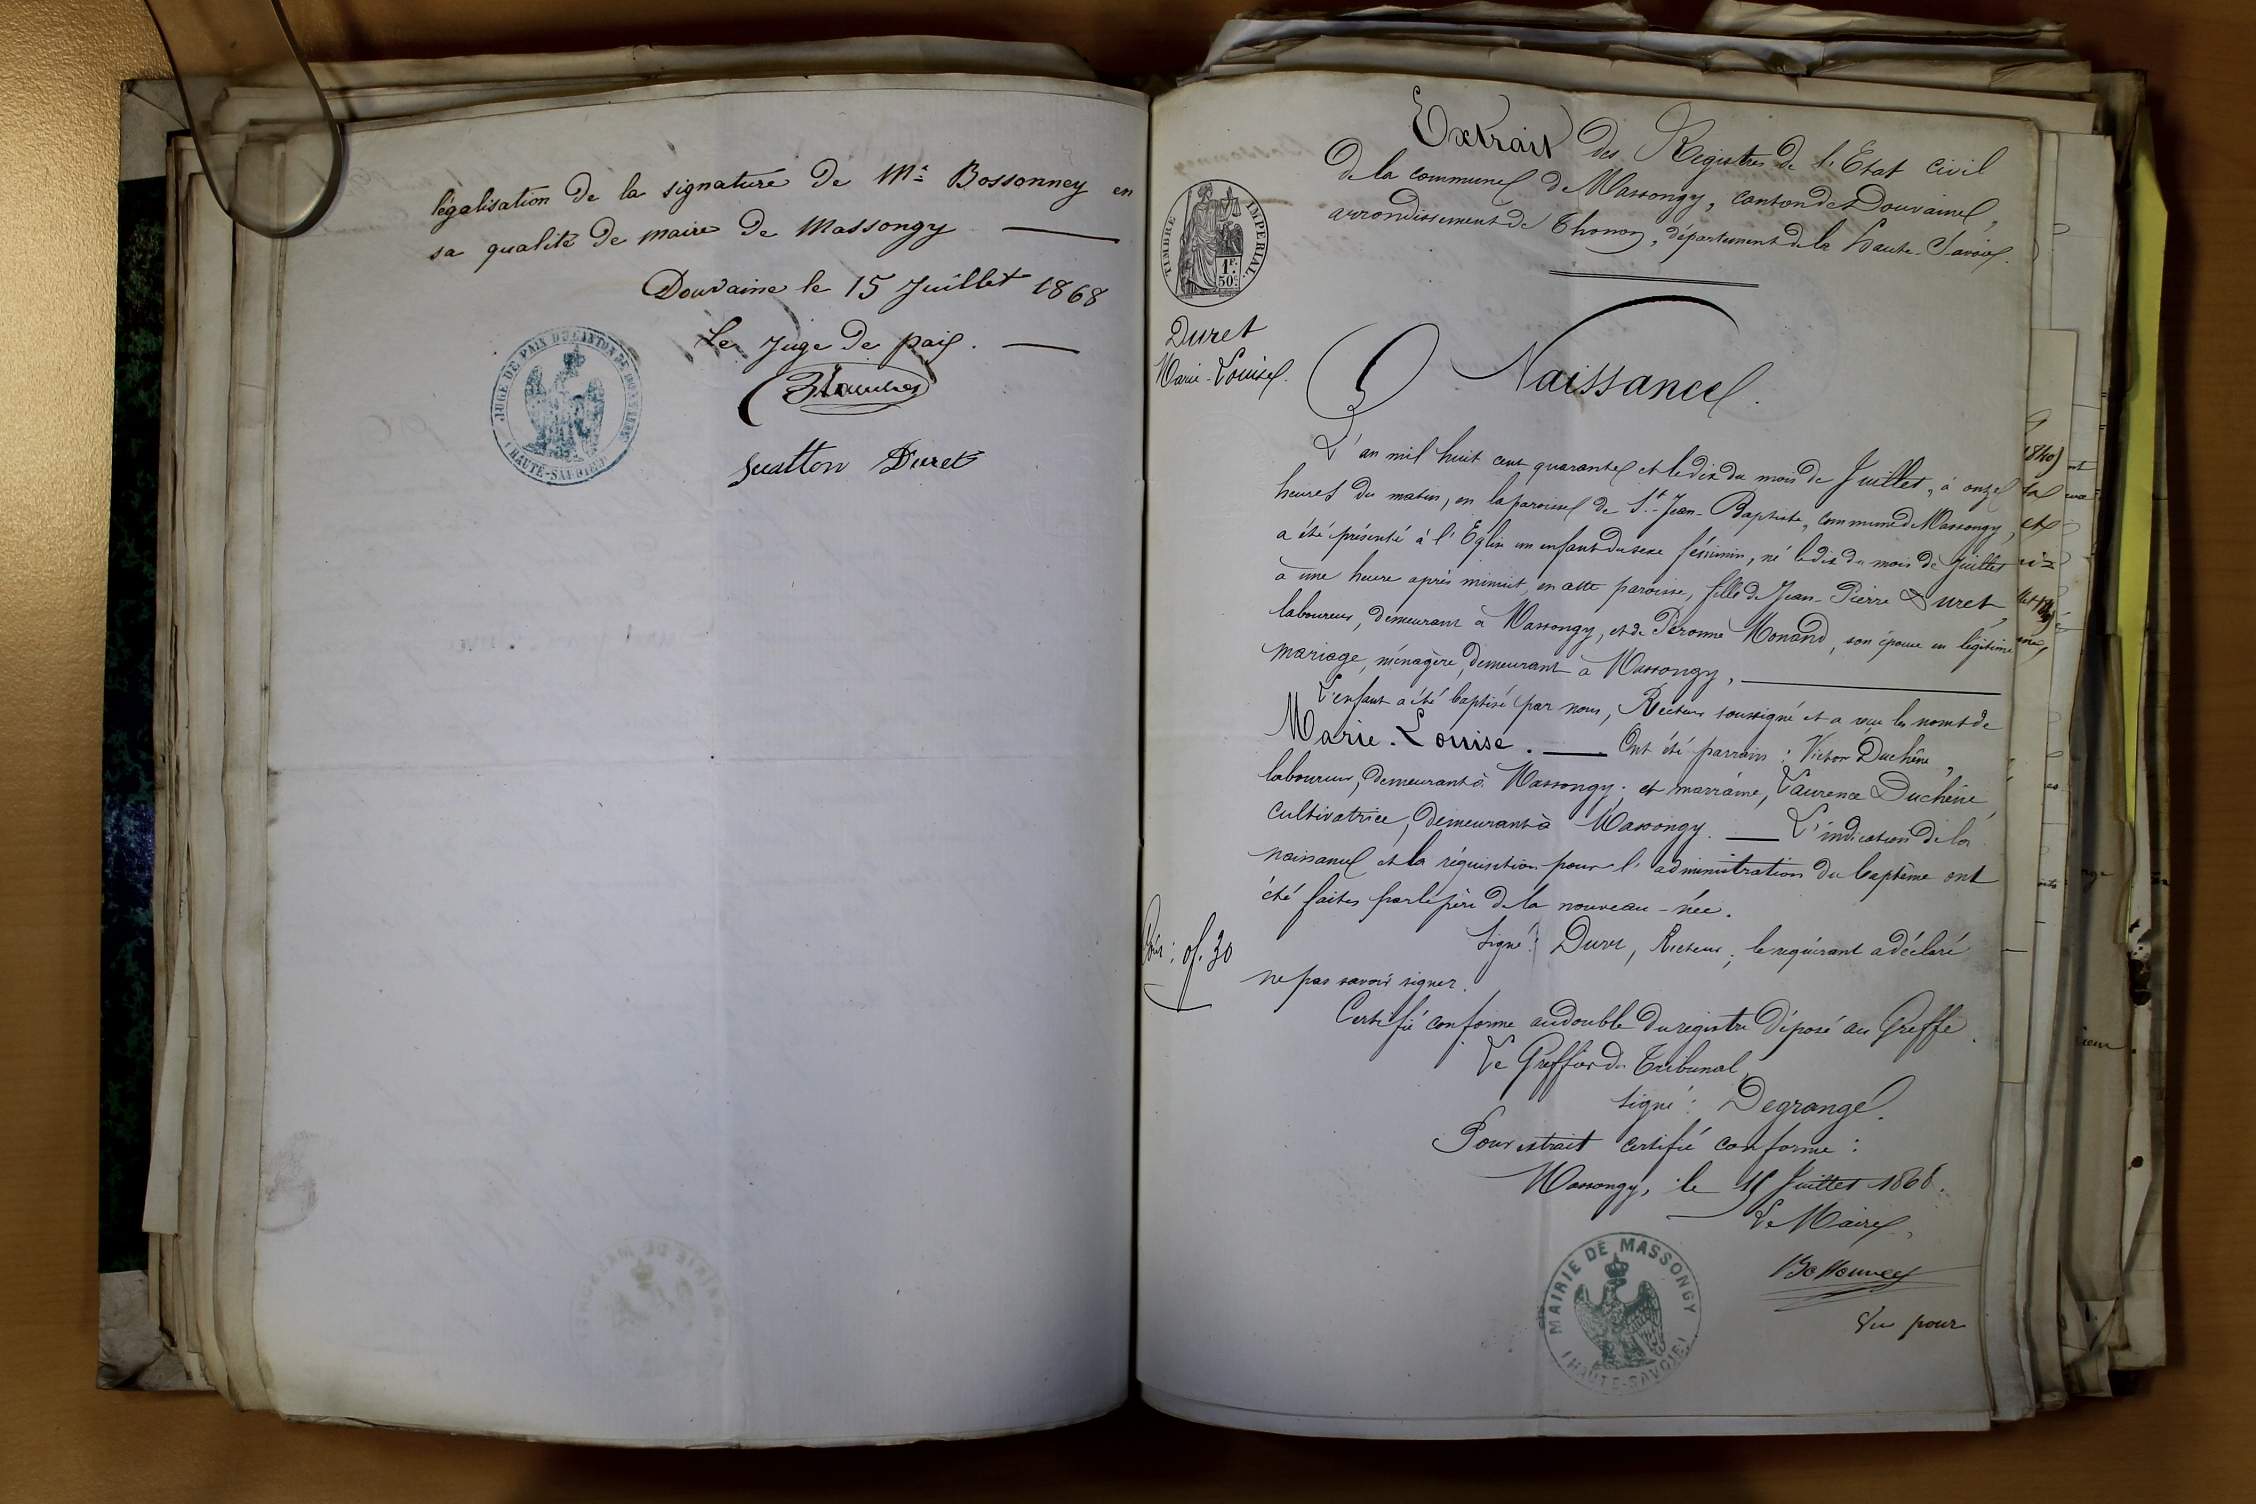 légalisation de la signature de Mr Bossonney en
sa qualité de maire de Massongy
Douvaine le 15 Juillet 1868
le Juge de paix.
Suatton Duret
JUGE DE PAIX DU CANTON DE DOUVAINE
(HAUTE-SAVOIE)
Extrait des Registres de l'Etat civil
de la commune de Massongy, canton de Douvaine,
arrondissement de Thonon, département de la Haute-Savoie.
TIMBRE IMPERIAL
1F.
50c.
Duret
Marie-Louise.
Naissance.
L'an mil huit cent quarante et le dix du mois de Juillet, à onze
heures du matin, en la paroisse de St-Jean-Baptiste, commune de Massongy,
a été présenté à l'Eglise un enfant du sexe féminin, né le dix du mois de Juillet
à une heure après minuit, en cette paroisse, fille de Jean-Pierre Duret,
laboureur, demeurant à Massongy, et de Peronne Monand, son épouse en légitime
mariage, ménagère, demeurant à Massongy.
L'enfant a été baptisé par nous, Recteur soussigné et a reçu les noms de
Marie-Louise. Ont été parrain: Victor Duchêne,
laboureur, demeurant à Massongy; et marraine, Laurence Duchêne,
cultivatrice, demeurant à Massongy. L'indication de la
naissance et la réquisition pour l'administration du baptême ont
été faites par le père de la nouveau-née.
Signé: , Recteur; le requérant a déclaré
ne pas savoir signer.
0f. 30
Certifié conforme au double du registre déposé au Greffe.
Le Greffier du Tribunal,
Signé: Degrange.
Pour extrait certifié conforme:
Massongy, le 15 Juillet 1868.
Le Maire,
Bossonney
Vu pour
MAIRIE DE MASSONGY
(HAUTE-SAVOIE)